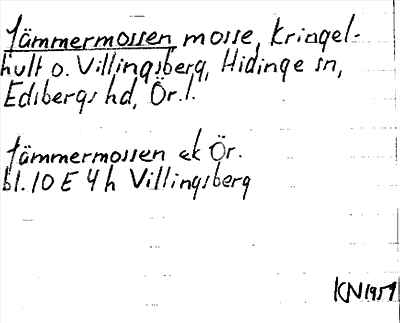 Jämmermossen, mosse, Kringel-
hult o. Villingsberg, Hidinge sn,
Edsbergs hd, Ör.l.
Jämmermossen ek Ör.
bl. 10 E 4 h Villingsberg
KN 1951